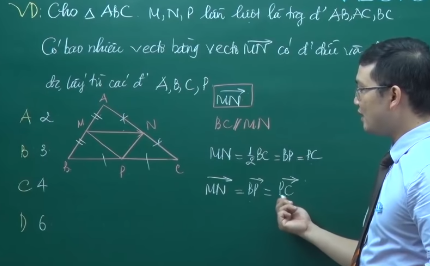 VD: Cho △ ABC. M, N, P lần lượt là trg đ' AB, AC, BC
Có bao nhiêu vectơ bằng vectơ MN có đ' đầu và
lấy từ các đ' A, B, C, P
MN
A 2
B 3
C 4
D 6
A
M
N
B
P
C
BC // MN
MN = 1/2 BC = BP = PC
MN = BP = PC